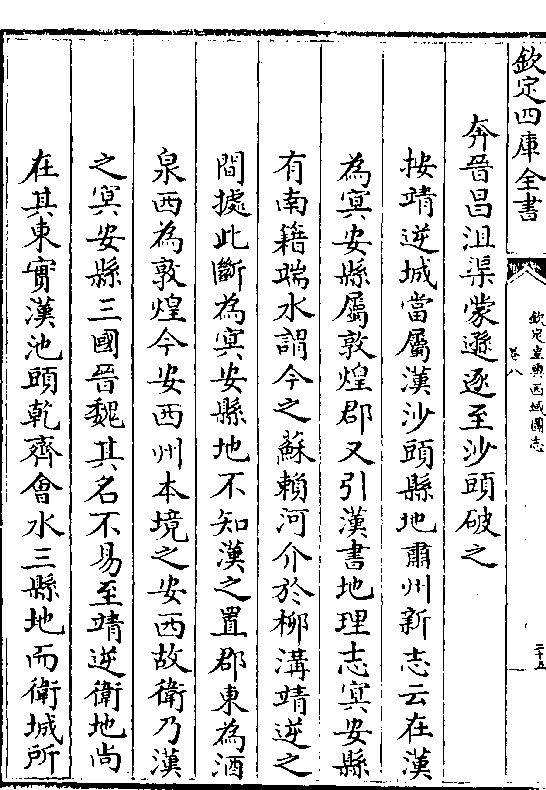 欽定四庫全書
欽定皇輿西域圖志
卷八
二十五
奔晉昌沮渠蒙遜逐至沙頭破之
按靖逆城當屬漢沙頭縣地肅州新志云在漢
為㝠安縣屬敦煌郡又引漢書地理志㝠安縣
有南籍端水謂今之蘇賴河介於柳溝靖逆之
間據此斷為㝠安縣地不知漢之置郡東為酒
泉西為敦煌今安西州本境之安西故衛乃漢
之㝠安縣三國晉魏其名不易至靖逆衛地尚
在其東實漢池頭乾齊會水三縣地而衛城所